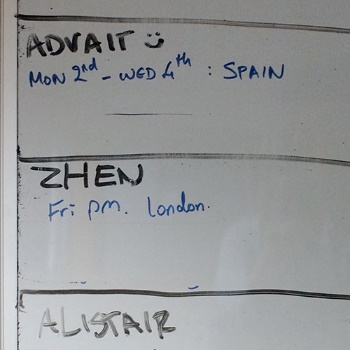 ADVAIT
MON 2nd - WED 4th : SPAIN
ZHEN
Fri pm. London.
ALISTAIR